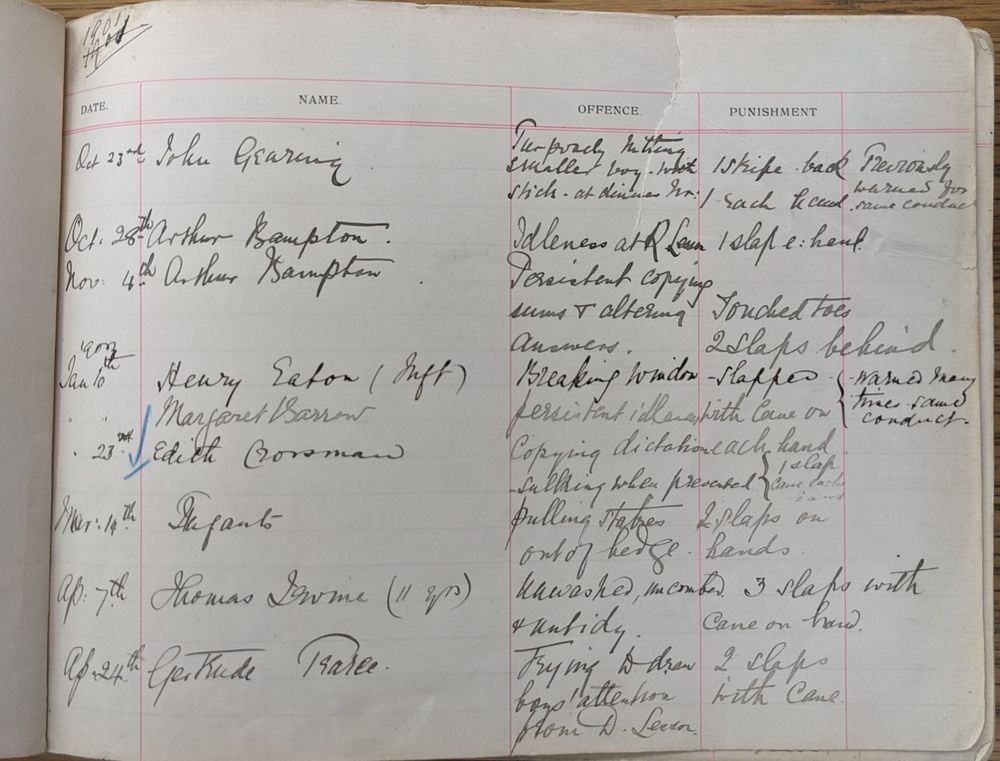 1901
DATE. NAME. OFFENCE. PUNISHMENT
Oct 23rd John Gearing Purposely hitting smaller boy with stick - at dinner hr: 1 stripe - back 1 each hand Previously warned for same conduct
Oct. 28th Arthur Bampton. Idleness at R Lesson 1 slap e: hand
Nov. 4th Arthur Bampton Persistent copying
sums & altering Touched toes
answers. 2 slaps behind.
1902
Jan 10th Henry Eaton (Inft) Breaking window - slapped - warned many
" " Margaret Barrow persistent idleness with cane on time same
conduct.
" 23rd Edith Crossman Copying dictation each hand
- sulking when prevented { 1 slap
cane each
hand
Mar: 14th Infants pulling stakes 2 slaps on
out of hedge. hands.
Ap: 7th Thomas Irvine (11 yrs) Unwashed, uncombed. 3 slaps with
& untidy. cane on hand.
Ap. 24th Gertrude Trying to draw 2 slaps
boys' attention with cane.
from D. Lesson.